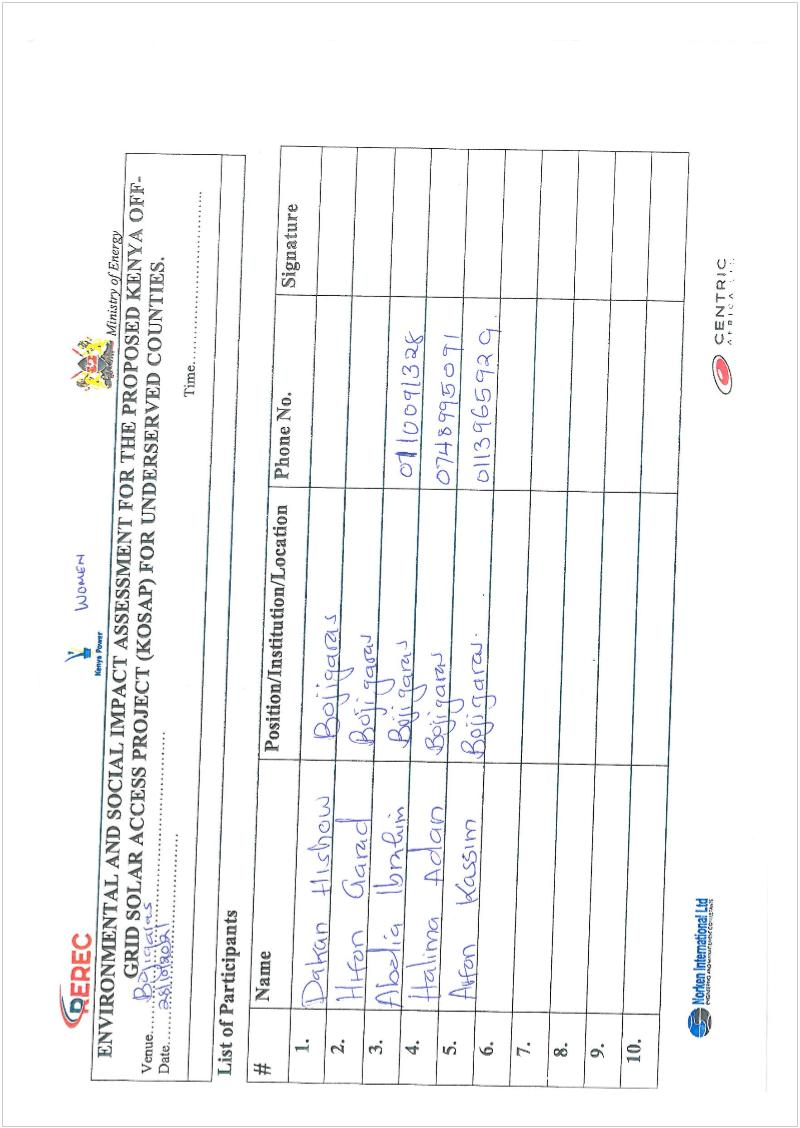 REREC
Kenya Power
WOMEN
Ministry of Energy
ENVIRONMENTAL AND SOCIAL IMPACT ASSESSMENT FOR THE PROPOSED KENYA OFF-
GRID SOLAR ACCESS PROJECT (KOSAP) FOR UNDERSERVED COUNTIES.
Venue Bojigaras
Date Time
List of Participants
# Name Position/Institution/Location Phone No. Signature
1. Dakan Hishow Bojigaras
2. Hifon Garad Bojigaras
3. Ibrahim Bojigaras 0110091328
4. Halima Adan Bojigaras 0748995091
5. Arfon Kassim Bojigaras. 0113965929.
6.
7.
8.
9.
10.
Norken International Ltd
CENTRIC
AFRICA LTD